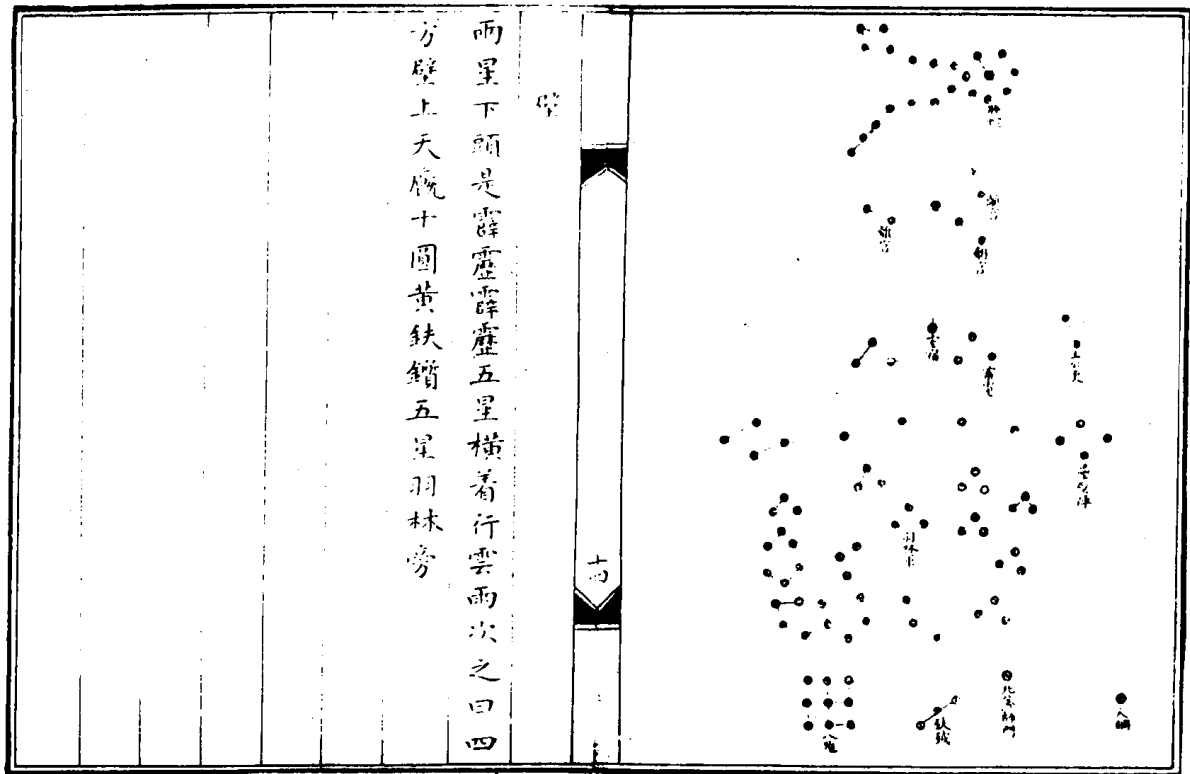 離宮
離宮
離宮
室宿
雷電
土公吏
壘壁陣
羽林軍
北落師門
天綱
鈇鉞
八魁
十四
壁
兩星下頭是霹靂霹靂五星橫着行雲雨次之曰四
方壁上天廐十圓黃鈇鑕五星羽林旁